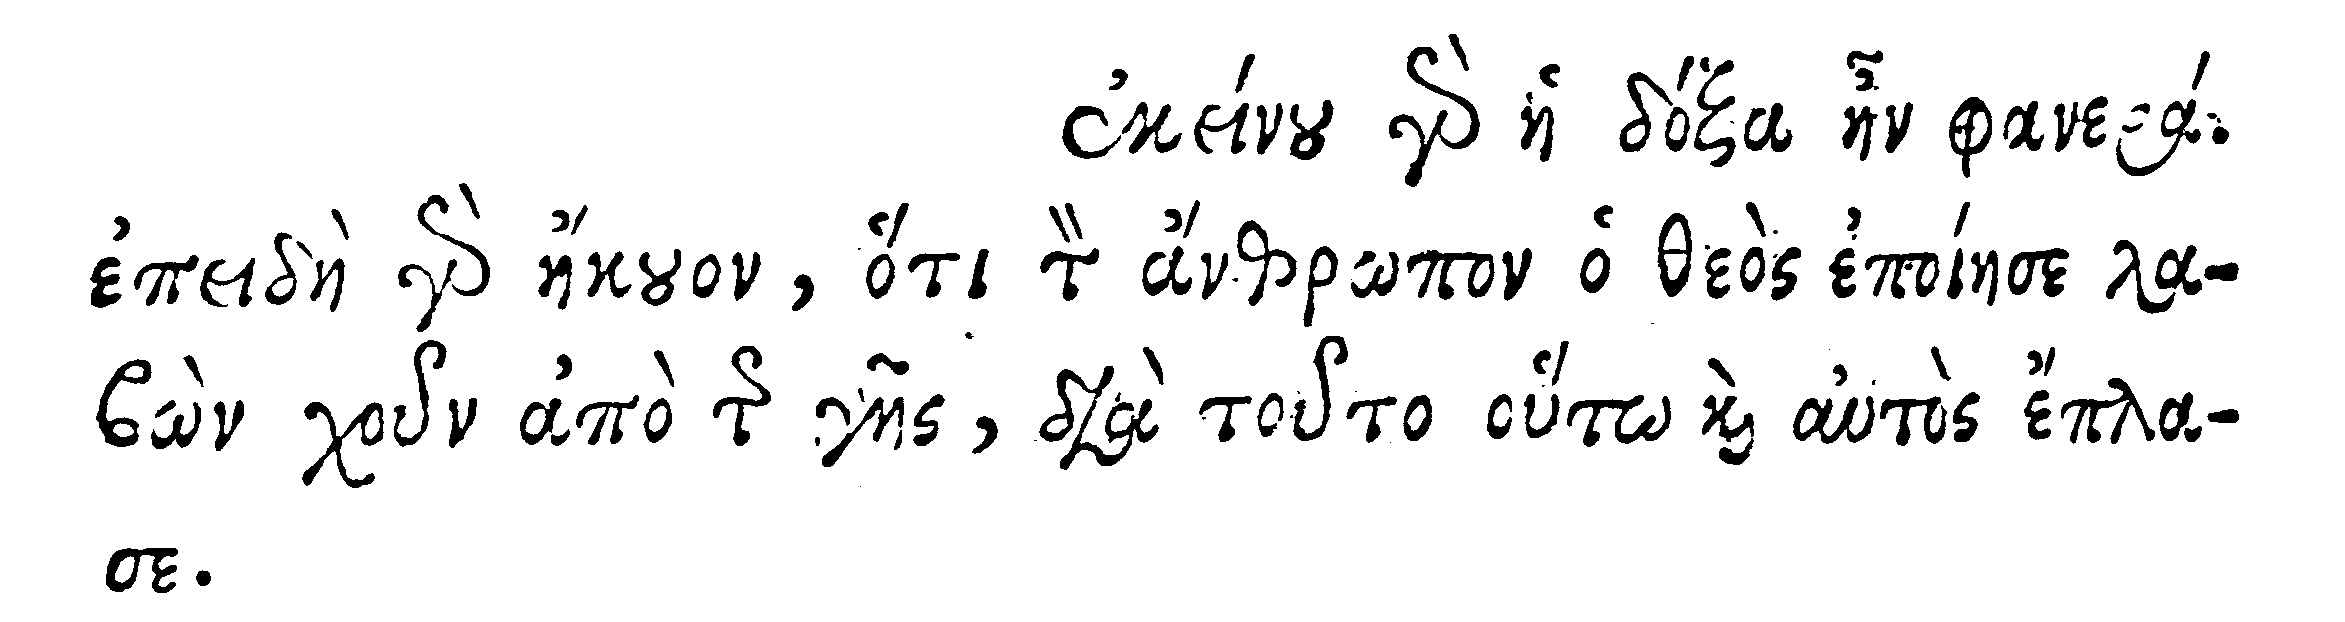 ἐκείνου γὰρ ἡ δόξα ἦν φανερά.
ἐπειδὴ γὰρ ἤκουον, ὅτι τὸν ἄνθρωπον ὁ θεὸς ἐποίησε λα-
βὼν χοῦν ἀπὸ τῆς γῆς, διὰ τοῦτο οὕτω καὶ αὐτὸς ἔπλα-
σε.